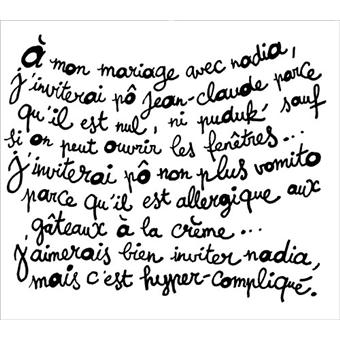 à mon mariage avec nadia,
j'inviterai pô jean-claude parce
qu'il est nul, ni puduk' sauf
si on peut ouvrir les fenêtres...
j'inviterai pô non plus vomito
parce qu'il est allergique aux
gâteaux à la crème...
j'aimerais bien inviter nadia,
mais c'est hyper-compliqué.